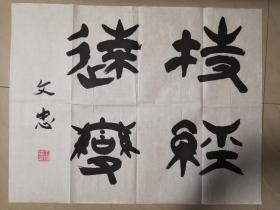 技經
達變
文忠